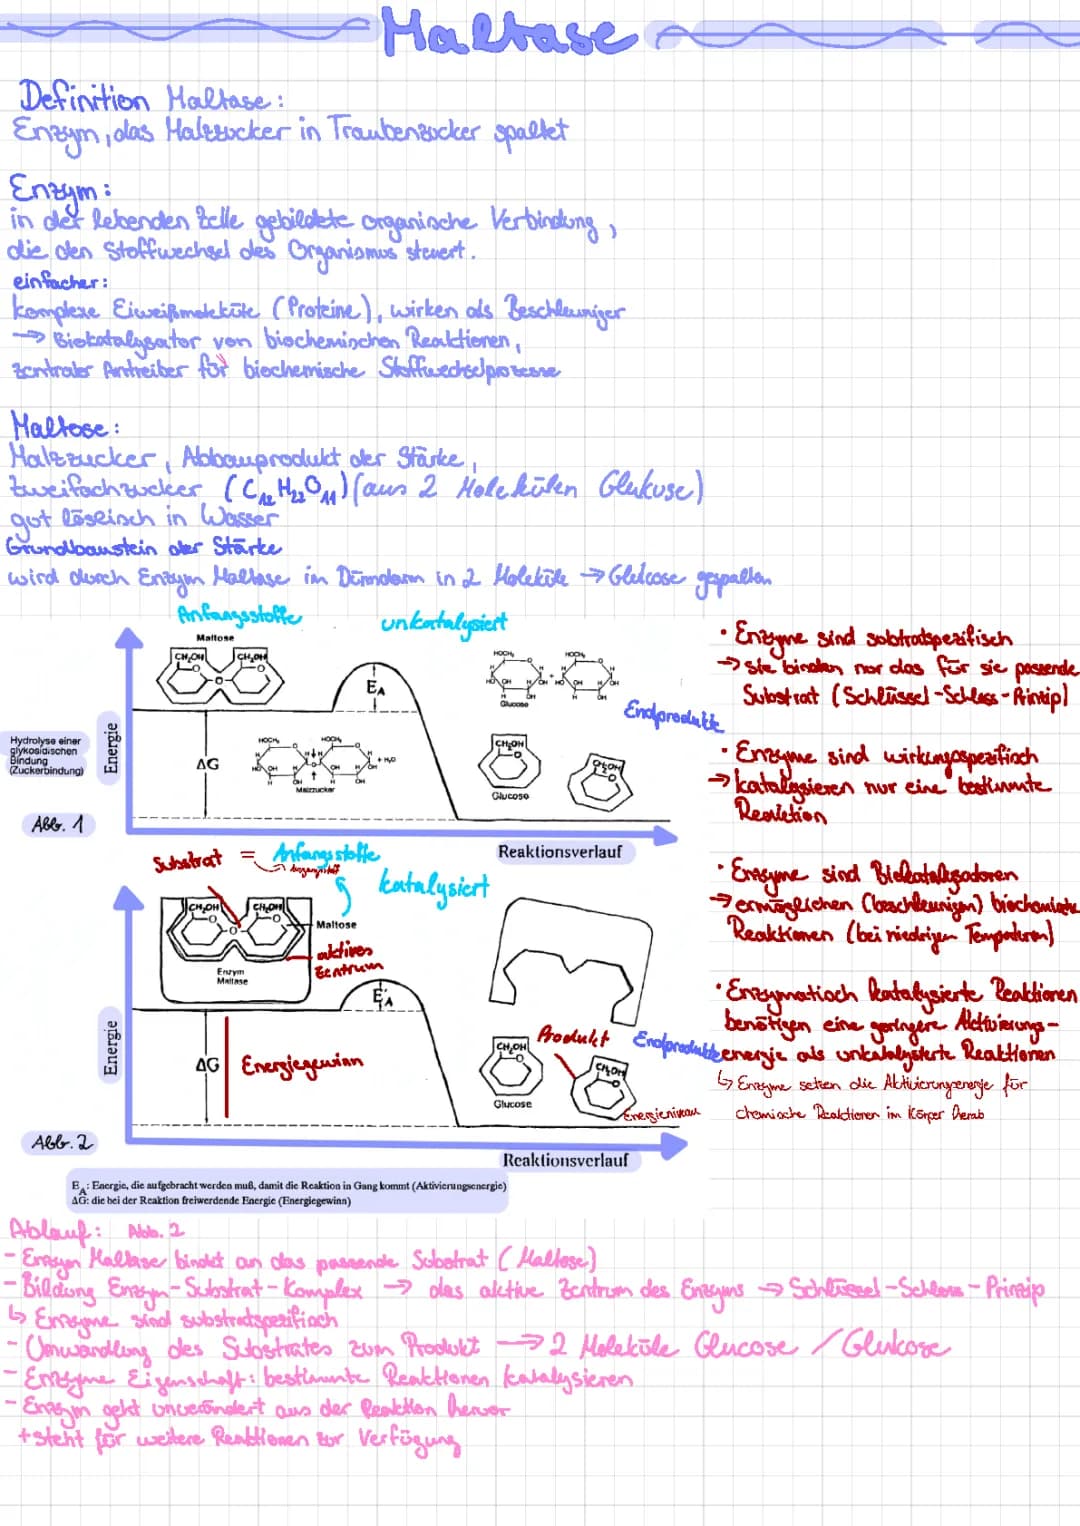 Maltase
Definition Maltase:
Enzym, das Malzzucker in Traubenzucker spaltet
Enzym:
in der lebenden Zelle gebildete organische Verbindung,
die den Stoffwechsel des Organismus steuert.
einfacher:
komplexe Eiweißmoleküle (Proteine), wirken als Beschleuniger
→ Biokatalysator von biochemischen Reaktionen,
zentraler Antreiber für biochemische Stoffwechselprozesse
Maltose:
Malzzucker, Abbauprodukt der Stärke,
Zweifachzucker (C12H22O11) (aus 2 Molekülen Glukose)
gut löslich in Wasser
Grundbaustein der Stärke
wird durch Enzym Maltase im Dünndarm in 2 Moleküle → Glucose gespalten
Anfangsstoffe
unkatalysiert
Maltose
CH₂OH
CH₂OH
O
EA
HOCH₂
HOCH₂
Glucose
Endprodukte
Hydrolyse einer
glykosidischen
Bindung
(Zuckerbindung)
Energie
ΔG
HOCH₂
HOCH₂
+ H₂O
Malzzucker
CH₂OH
O
Glucose
CH₂OH
Abb. 1
Reaktionsverlauf
Substrat = Anfangsstoffe
katalysiert
CH₂OH
CH₂OH
O
Maltose
aktives
Zentrum
Enzym
Maltase
EA
Energie
ΔG
Energiegewinn
CH₂OH
O
Glucose
Produkt
CH₂OH
Endprodukte
Energieniveau
Abb. 2
Reaktionsverlauf
EA: Energie, die aufgebracht werden muß, damit die Reaktion in Gang kommt (Aktivierungsenergie)
ΔG: die bei der Reaktion freiwerdende Energie (Energiegewinn)
• Enzyme sind substratspezifisch
→ sie binden nur das für sie passende
Substrat (Schlüssel-Schloss-Prinzip)
• Enzyme sind wirkungsspezifisch
→ katalysieren nur eine bestimmte
Reaktion
• Enzyme sind Biokatalysatoren
→ ermöglichen (beschleunigen) biochemische
Reaktionen (bei niedrigen Temperaturen)
• Enzymatisch katalysierte Reaktionen
benötigen eine geringere Aktivierungs-
energie als unkatalysierte Reaktionen
↳ Enzyme setzen die Aktivierungsenergie für
chemische Reaktionen im Körper herab
Ablauf: Abb. 2
- Enzym Maltase bindet an das passende Substrat (Maltose)
- Bildung Enzym-Substrat-Komplex → das aktive Zentrum des Enzyms → Schlüssel-Schloss-Prinzip
↳ Enzyme sind substratspezifisch
- Umwandlung des Substrates zum Produkt → 2 Moleküle Glucose / Glukose
- Enzyme Eigenschaft: bestimmte Reaktionen katalysieren
- Enzym geht unverändert aus der Reaktion hervor
+ steht für weitere Reaktionen zur Verfügung